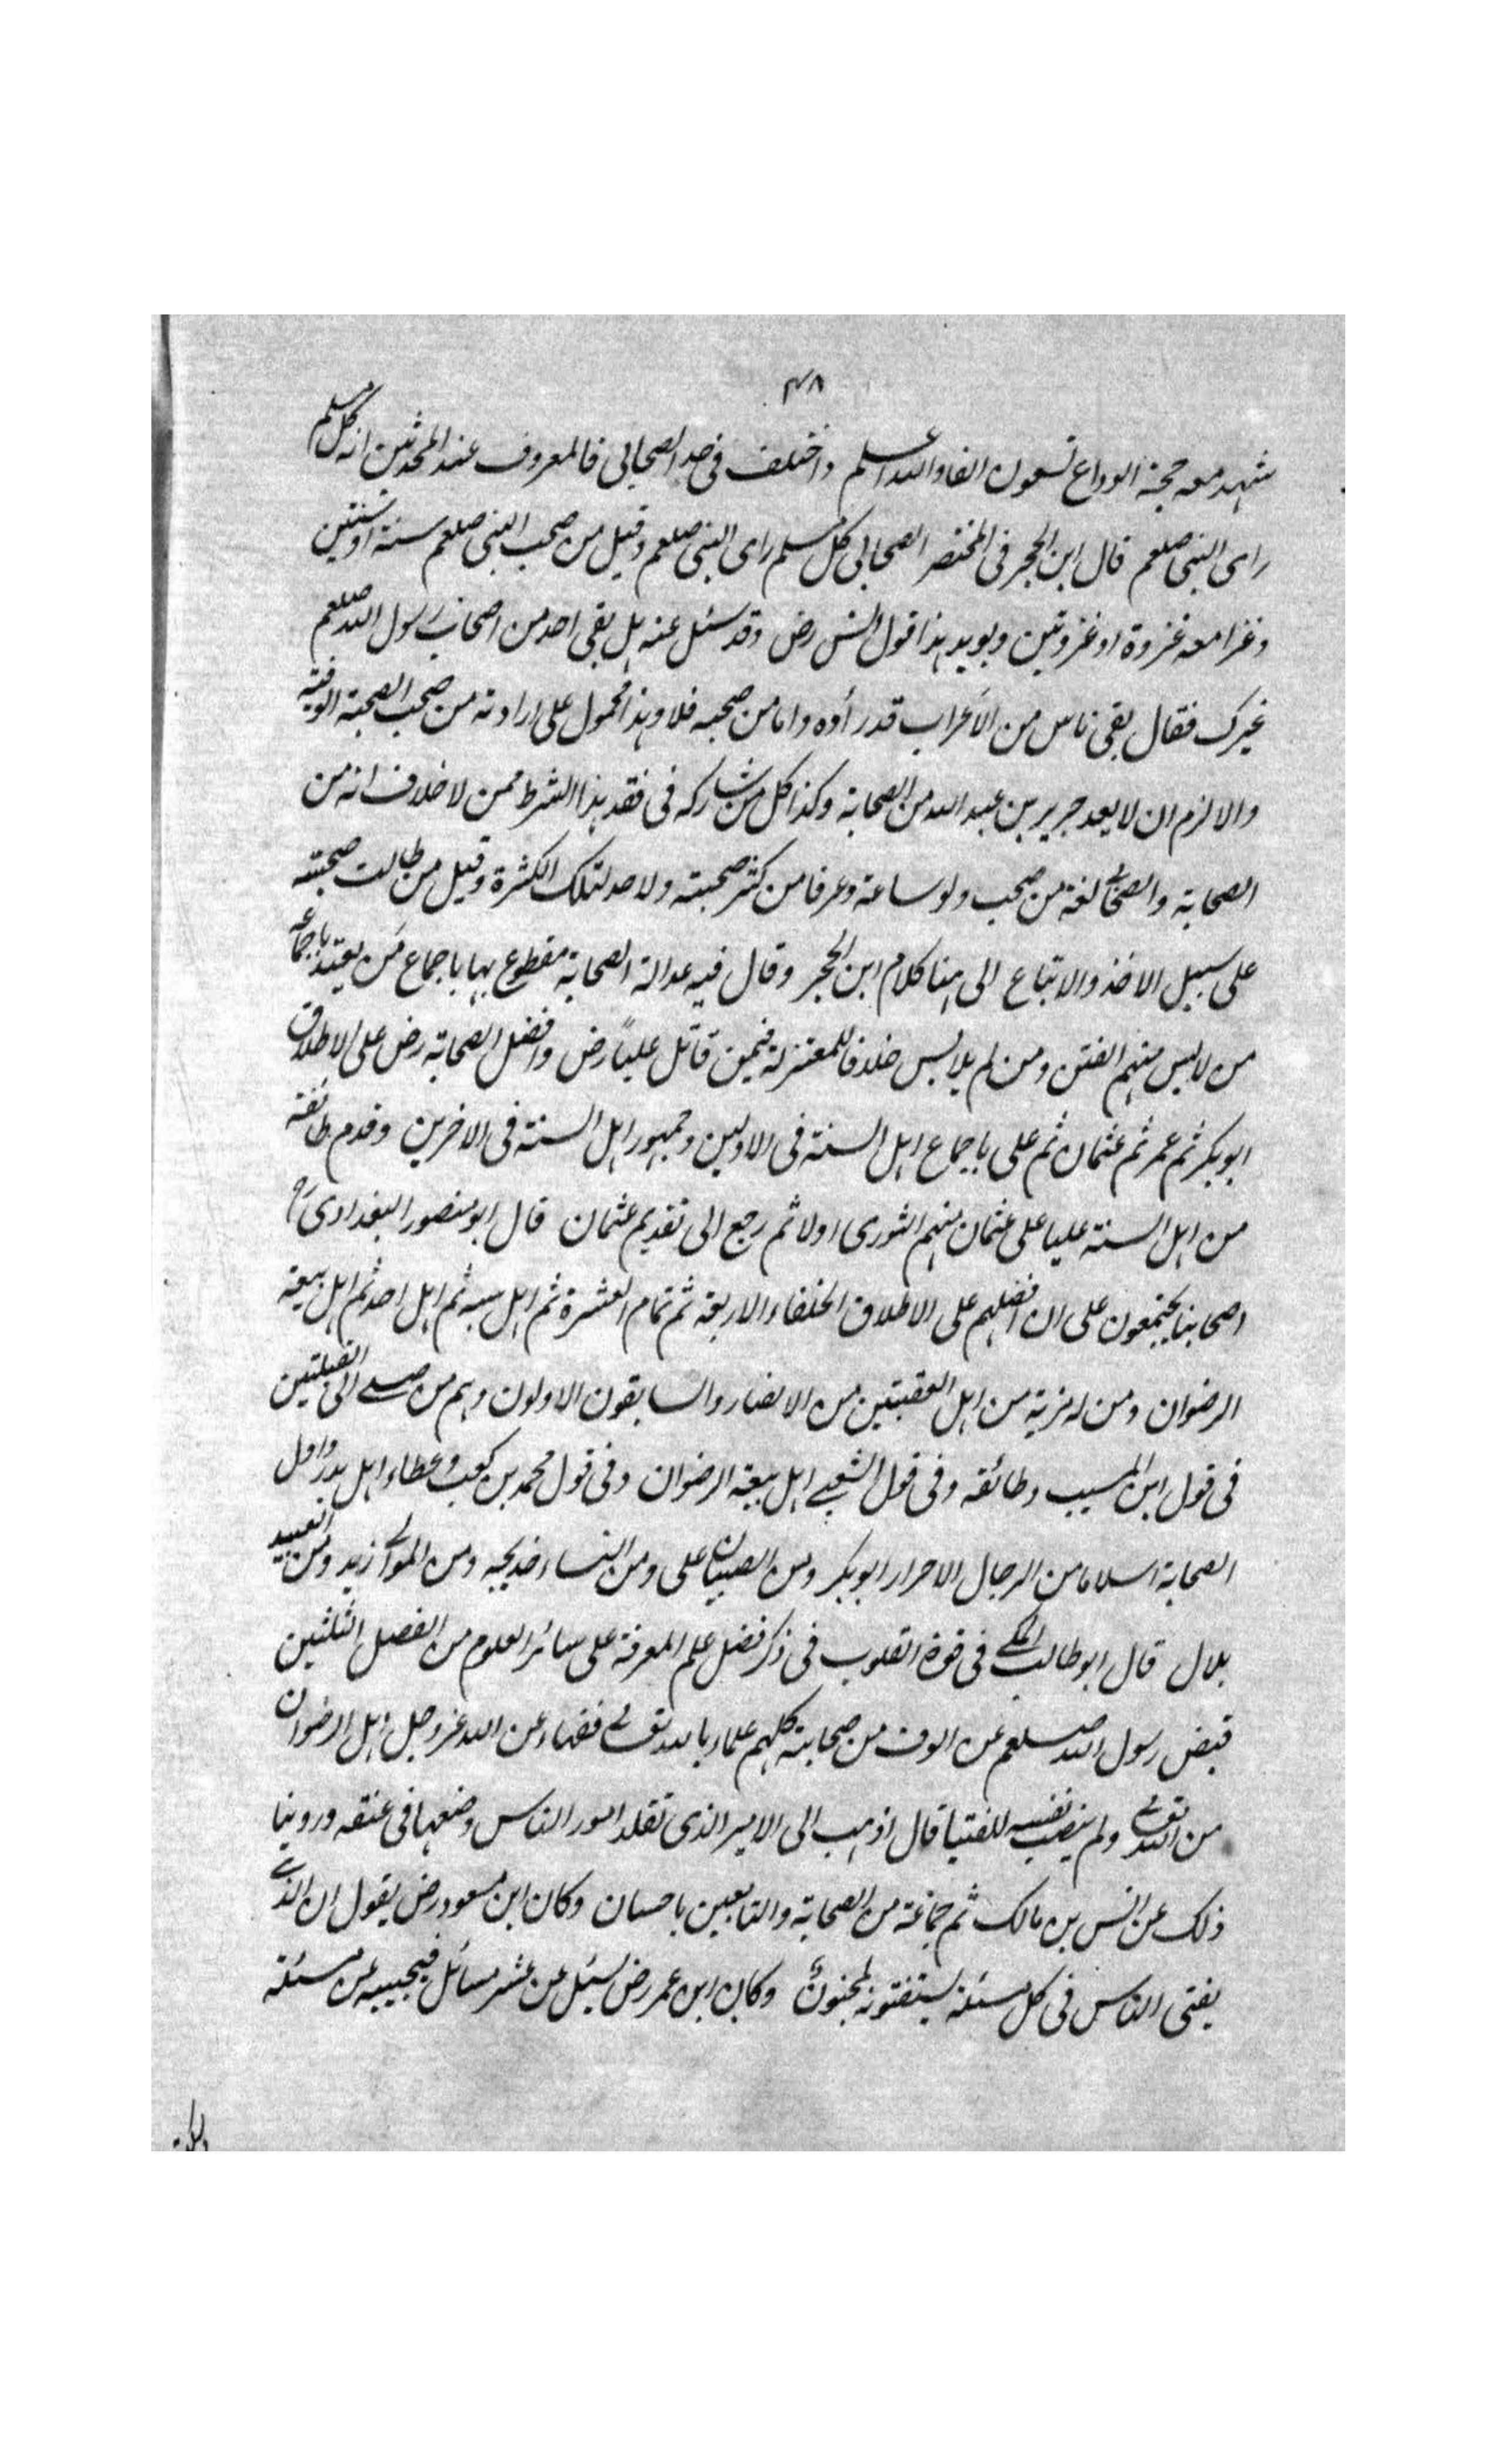 ٣٨
شهد معه حجة الوداع تسعون الفا والله اعلم واختلف فى حد الصحابى فالمعروف عند المحدثين انه كل مسلم
راى النبى صلعم قال ابن الحجر فى المختصر الصحابى كل مسلم راى النبى صلعم وقيل من صحب النبى صلعم سنة او سنتين
وغزا معه غزوة او غزوتين ويويد هذا قول انس رض وقد سئل عنه هل بقى احد من اصحاب رسول الله صلعم
غيرك فقال بقى ناس من الأعراب قد رأوه واما من صحبه فلا وهذا محمول على ارادته من صحب الصحبة الوفية
والا لزم ان لا يعد جرير بن عبد الله من الصحابة وكذا كل من شاركه فى فقد هذا الشرط ممن لا خلاف انه من
الصحابة والصحابى لغة من صحب ولو ساعة وعرفا من كثر صحبته ولا حد لتلك الكثرة وقيل من طالت صحبته
على سبيل الاخذ والاتباع الى هنا كلام ابن الحجر وقال فيه عدالة الصحابة مقطوع بها باجماع من يعتد باجماعه
من لابس منهم الفتن ومن لم يلابس خلافا للمعتزلة فيمن قاتل علياً رض وافضل الصحابة رض على الاطلاق
ابو بكر ثم عمر ثم عثمان ثم على باجماع اهل السنة فى الاولين وجمهور اهل السنة فى الاخرين وقدم طائفة
من اهل السنة عليا على عثمان منهم الثورى اولا ثم رجع الى تقديم عثمان قال ابو منصور البغدادى رح
اصحابنا يجتمعون على ان افضلهم على الاطلاق الخلفاء الاربعة ثم تمام العشرة ثم اهل ثم اهل احد ثم اهل بيعة
الرضوان ومن له مزية من اهل العقبتين من الانصار والسابقون الاولون وهم من صلے الى القبلتين
فى قول ابن المسيب وطائفه وفى قول الشعبے اهل بيعة الرضوان وفى قول محمد بن كعب وعطاء اهل بدر واول
الصحابة اسلاما من الرجال الاحرار ابو بكر ومن الصبيان على ومن النساء خديجه ومن الموالے زيد ومن العبيد
بلال قال ابو طالب المكے فى قوة القلوب فى ذكر فضل علم المعرفة على سائر العلوم من الفصل الثلثين
قبض رسول الله صلعم عن الوف من صحابته كلهم علماء بالله تعالے فقهاء عن الله عز وجل اهل الرضوان
من الله تعالے ولم ينصب نفسه للفتيا قال اذهب الى الامير الذى تقلد امور الناس وضعها فى عنقه وروينا
ذلك عن انس بن مالك ثم جماعة من الصحابة والتابعين باحسان وكان ابن مسعود رض يقول ان الذے
يفتى الناس فى كل مسئلة يستفتونه لمجنون وكان ابن عمر رض يسئل عن عشر مسائل فيجيب عن مسئلة